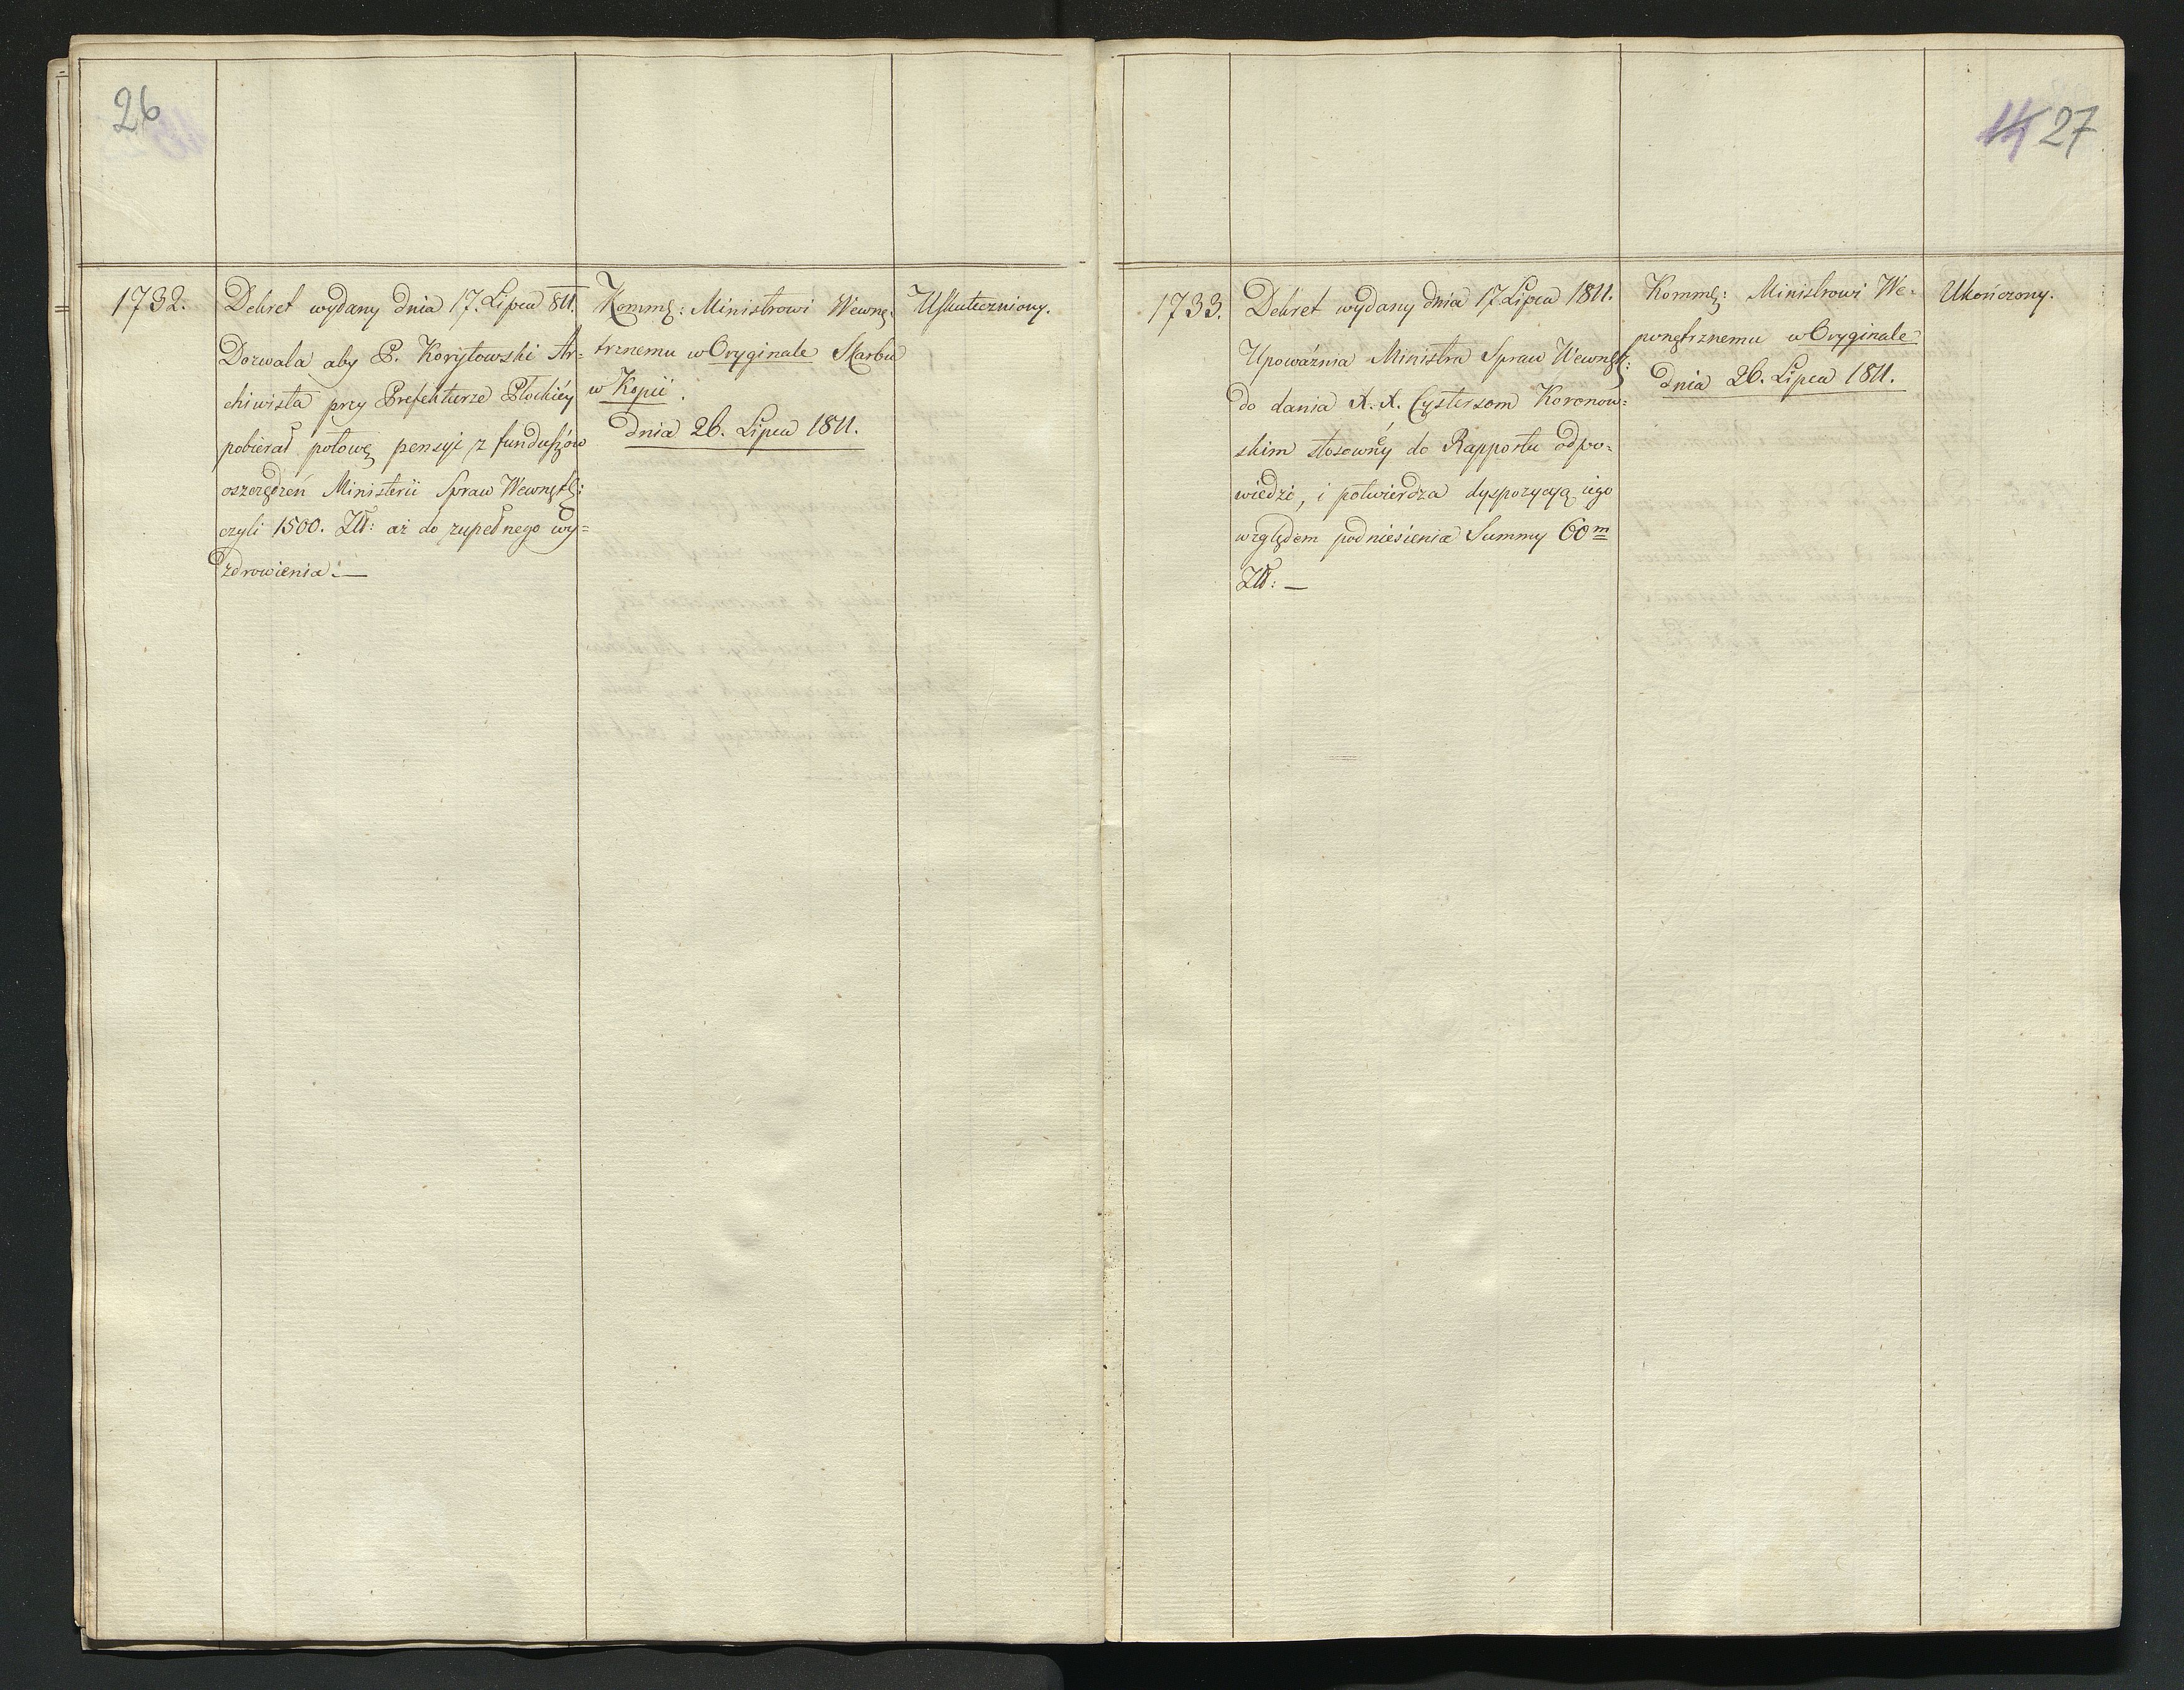 26
1732.
Dekret wydany dnia 17. Lipca 811.
Dozwala aby P. Korytowski Ar-
chiwista przy Prefekturze Płockiéy
pobierał połowę pensyi z funduszów
oszczędzeń Ministerii Spraw Wewnętrz:
czyli 1500. Zł: aż do zupełnego wy=
zdrowienia. —
Kommę: Ministrowi Wewnę-
trznemu w Oryginale Skarbu
w Kopii.
dnia 26. Lipca 1811.
Uskuteczniony.
14 27
1733.
Dekret wydany dnia 17 Lipca 1811.
Upoważnia Ministra Spraw Wewnętrz:
do dania X.X. Cystersom Koronow=
skim stosownéy do Rapportu odpo=
wiedzi, i potwierdza dyspozycyą iego
względem podniesienia Summy 60m
Zł: —
Kommę: Ministrowi We-
wnętrznemu w Oryginale
dnia 26. Lipca 1811.
Ukończony.